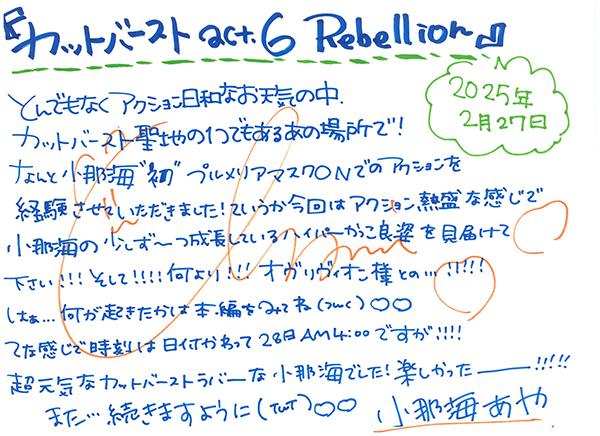 『カットバースト act.6 Rebellion』
2025年
2月27日
とんでもなくアクション日和なお天気の中、
カットバースト聖地の1つでもあるあの場所で!
なんと小那海"初"プルメリアマスクONでのアクションを
経験させていただきました!ていうか今回はアクション熱盛な感じで
小那海の少しず〜つ成長しているハイパーかっこ良姿を見届けて
下さい!!!そして!!!!何より!!!オヴリヴィオン様との…!!!!!
はぁ…何が起きたかは本編をみてね(TwT)○○
てな感じで時刻は日付かわって28日AM4:00ですが!!!!
超元気なカットバーストラバーな小那海でした!楽しかったーー!!!!!
また…続きますように(TwT)○○
小那海あや